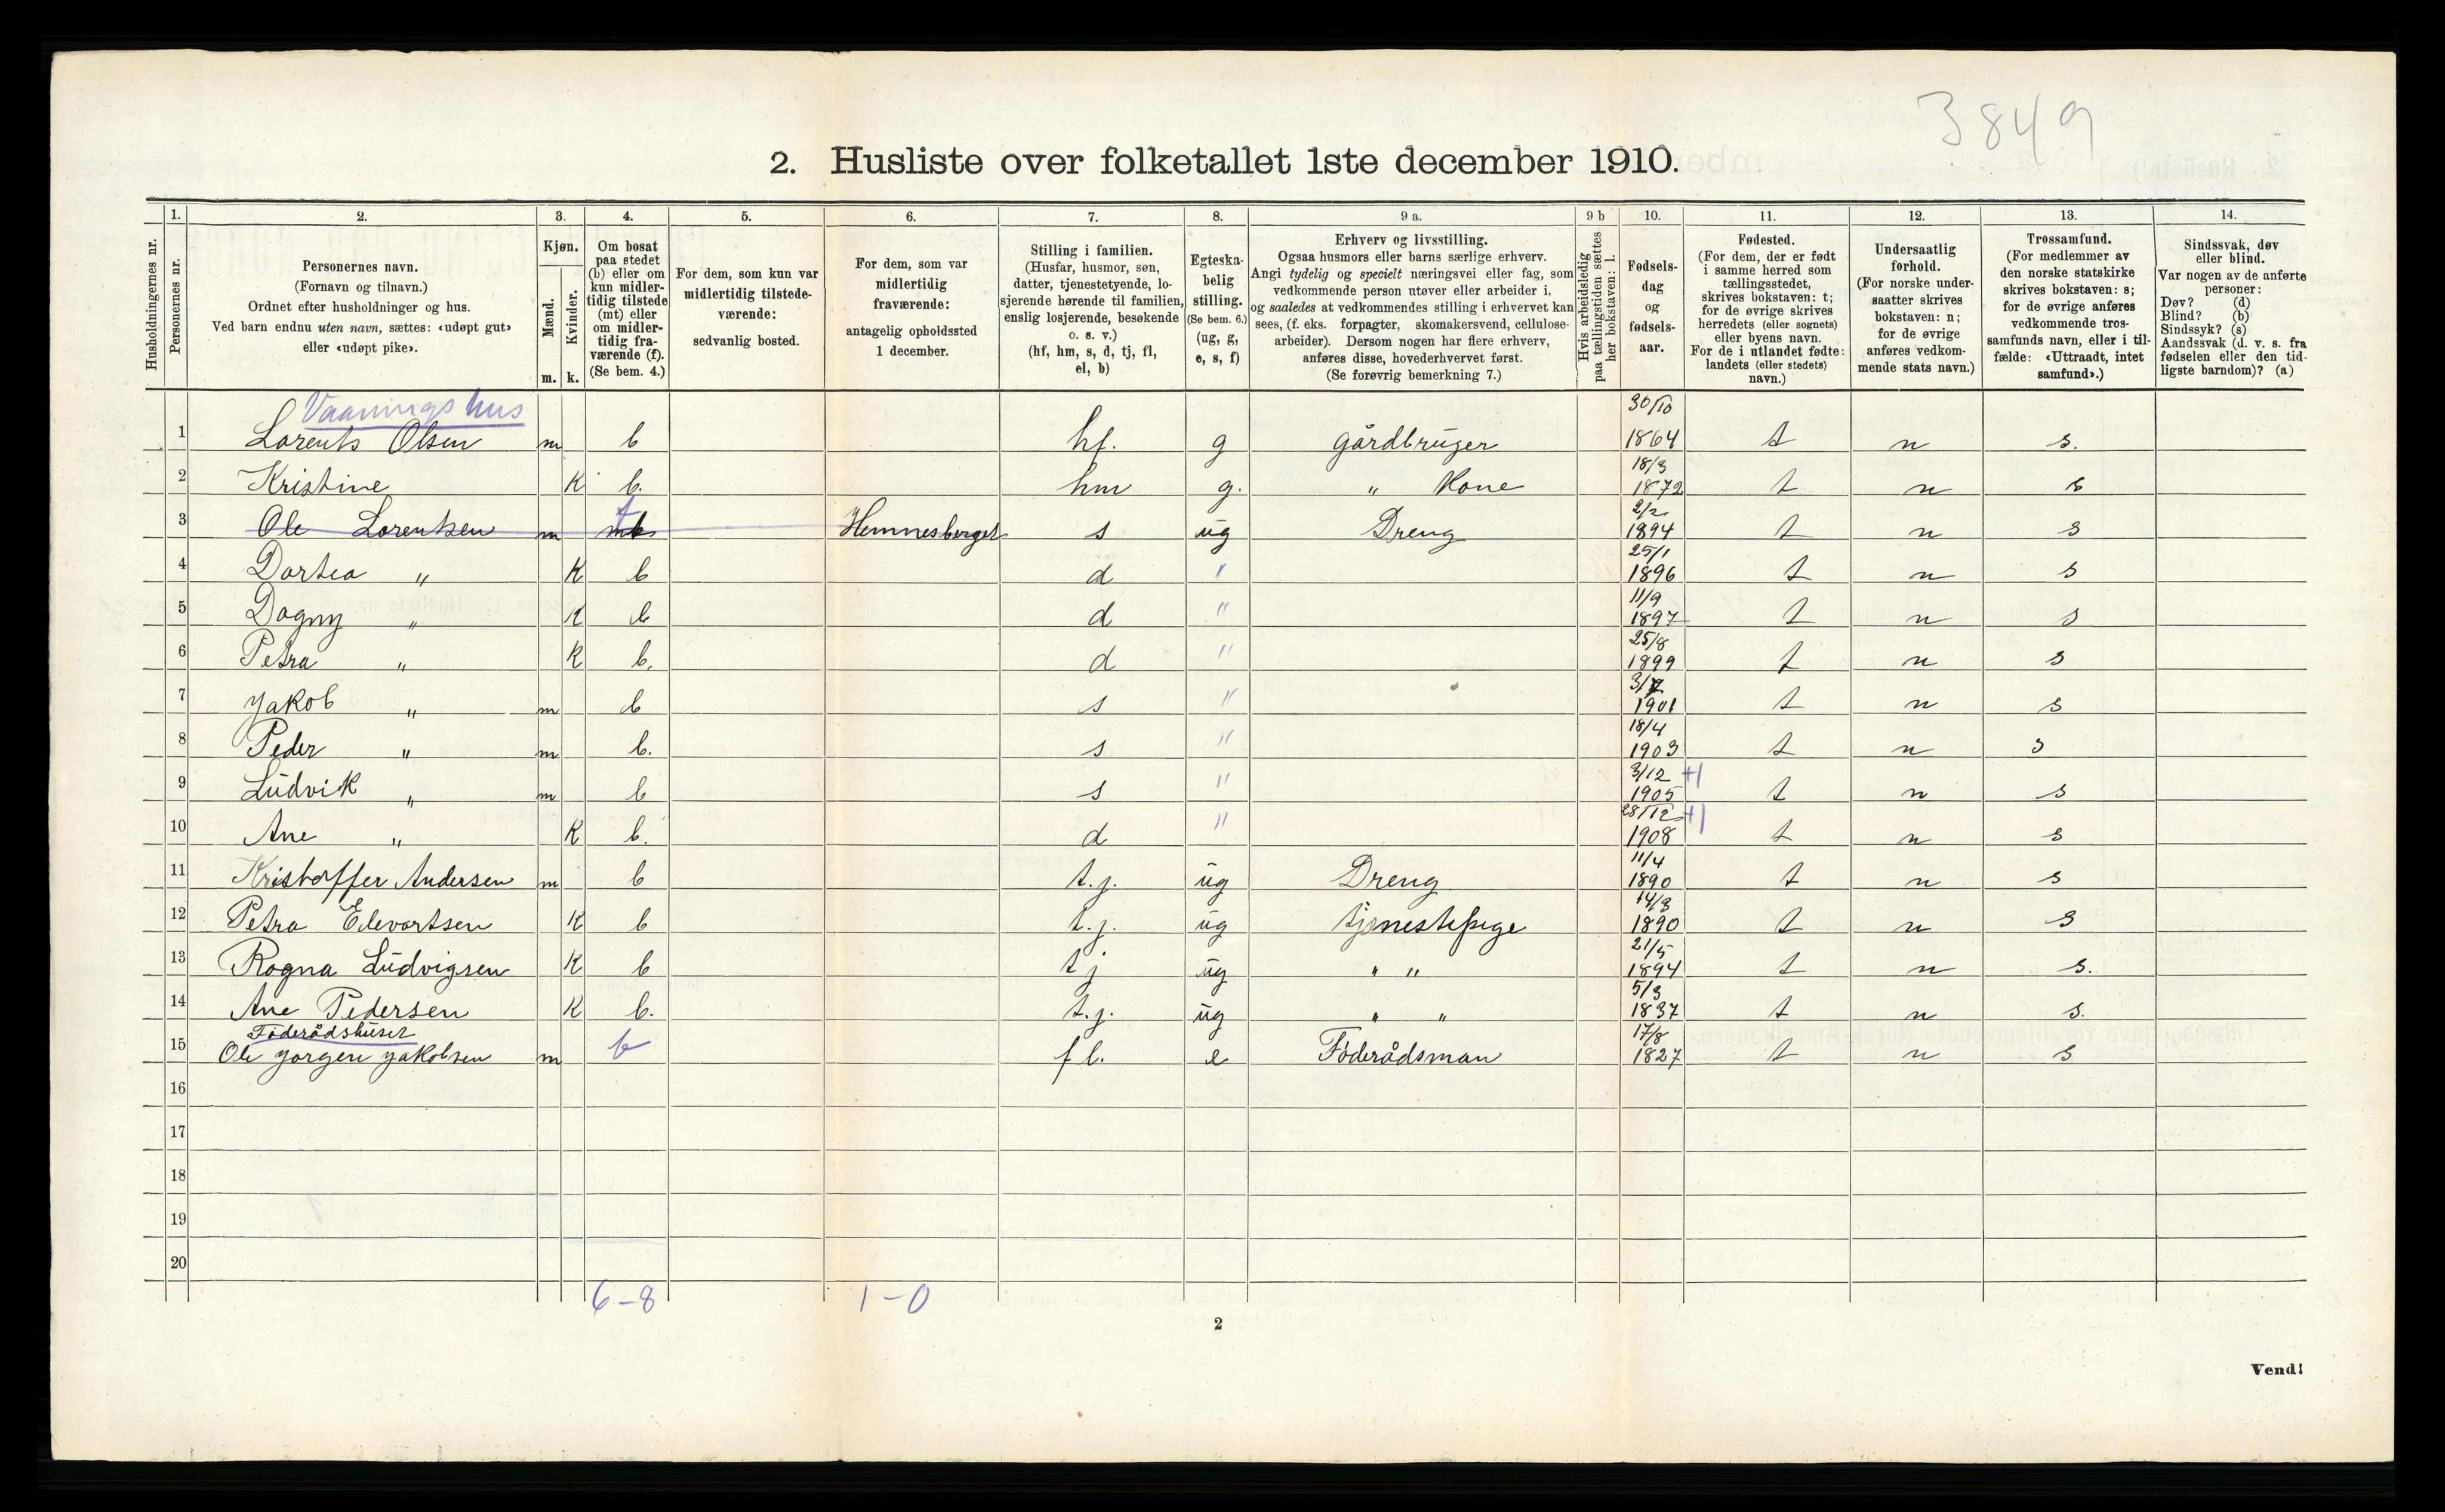 3849
2. Husliste over folketallet 1ste december 1910.
1. 2. 3. 4. 5. 6. 7. 8. 9 a. 9 b 10. 11. 12. 13. 14.
Husholdningernes nr.
Personernes nr.
Personernes navn.
(Fornavn og tilnavn.)
Ordnet efter husholdninger og hus.
Ved barn endnu uten navn, sættes: «udøpt gut»
eller «udøpt pike».
Kjøn.
Mænd.
Kvinder.
m. k.
Om bosat
paa stedet
(b) eller om
kun midler-
tidig tilstede
(mt) eller
om midler-
tidig fra-
værende (f).
(Se bem. 4.)
For dem, som kun var
midlertidig tilstede-
værende:
sedvanlig bosted.
For dem, som var
midlertidig
fraværende:
antagelig opholdssted
1 december.
Stilling i familien.
(Husfar, husmor, søn,
datter, tjenestetyende, lo-
sjerende hørende til familien,
enslig losjerende, besøkende
o. s. v.)
(hf, hm, s, d, tj, fl,
el, b)
Egteska-
belig
stilling.
(Se bem. 6.)
(ug, g,
e, s, f)
Erhverv og livsstilling.
Ogsaa husmors eller barns særlige erhverv.
Angi tydelig og specielt næringsvei eller fag, som
vedkommende person utøver eller arbeider i,
og saaledes at vedkommendes stilling i erhvervet kan
sees, (f. eks. forpagter, skomakersvend, cellulose-
arbeider). Dersom nogen har flere erhverv,
anføres disse, hovederhvervet først.
(Se forøvrig bemerkning 7.)
Hvis arbeidsledig
paa tællingstiden sættes
her bokstaven: l.
Fødsels-
dag
og
fødsels-
aar.
Fødested.
(For dem, der er født
i samme herred som
tællingsstedet,
skrives bokstaven: t;
for de øvrige skrives
herredets (eller sognets)
eller byens navn.
For de i utlandet fødte:
landets (eller stedets)
navn.)
Undersaatlig
forhold.
(For norske under-
saatter skrives
bokstaven: n;
for de øvrige
anføres vedkom-
mende stats navn.)
Trossamfund.
(For medlemmer av
den norske statskirke
skrives bokstaven: s;
for de øvrige anføres
vedkommende tros-
samfunds navn, eller i til-
fælde: «Uttraadt, intet
samfund».)
Sindssvak, døv
eller blind.
Var nogen av de anførte
personer:
Døv? (d)
Blind? (b)
Sindssyk? (s)
Aandssvak (d. v. s. fra
fødselen eller den tid-
ligste barndom)? (a)
Vaaningshus
1 Lorents Olsen m b hf. g gårdbruger 30/10 1864 t n s.
2 Kristine K b. hm g. " Kone 18/3 1872 t n s
3 Ole Lorentsen m f Hemnesberget s ug Dreng 2/2 1894 t n s
4 Dortea " K b d " 25/1 1896 t n s
5 Dagny " K b d " 11/9 1897 t n s
6 Petra " K b. d " 25/8 1899 t n s
7 Jakob " m b s " 3/7 1901 t n s
8 Peder " m b. s " 18/4 1903 t n s
9 Ludvik " m b s " 3/12 1905 +1 t n s
10 Ane " K b. d " 28/12 1908 +1 t n s
11 Kristoffer Andersen m b t.j. ug Dreng 11/4 1890 t n s
12 Petra Edevartsen K b t.j. ug tjenestepige 14/3 1890 t n s
13 Rogna Ludvigsen K b tj ug " " 21/5 1894 t n s.
14 Ane Pedersen K b. t.j. ug " " 5/3 1837 t n s.
Föderådshuset
15 Ole Jorgen Jakobsen m b fl. e Föderådsman 17/8 1827 t n s
16
17
18
19
20
6-8 1-0
2
Vend!